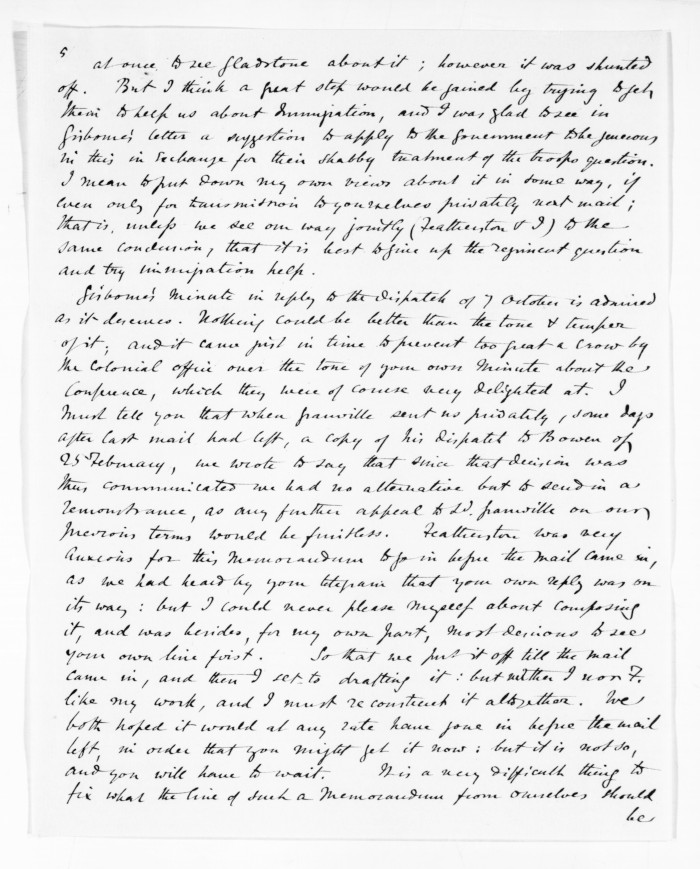 5
at once to see Gladstone about it; however it was shunted
off. But I think a great step would be gained by trying to get
them to help us about Immigration, and I was glad to see in
Gisborne's letter a suggestion to apply to the Government to be generous
in this in exchange for their shabby treatment of the troops question.
I mean to put down my own views about it in some way, if
even only for transmission to yourselves privately next mail;
that is, unless we see our way jointly (Featherston & I) to the
same conclusion, that it is best to give up the regiment question
and try immigration help.
Gisborne's Minute in reply to the dispatch of 7 October is admired
as it deserves. Nothing could be better than the tone & temper
of it; and it came just in time to prevent too great a crow by
the Colonial office over the tone of your own Minute about the
Conference, which they were of course very delighted at. I
must tell you that when Granville sent us privately, some days
after last mail had left, a copy of his dispatch to Bowen of
25 February, we wrote to say that since that decision was
thus communicated we had no alternative but to send in a
remonstrance, as any further appeal to Ld. Granville on our
previous terms would be fruitless. Featherston was very
anxious for this Memorandum to go in before the mail came in,
as we had heard by your telegram that your own reply was on
its way: but I could never please myself about composing
it, and was besides, for my own part, most desirous to see
your own line first. So that we put it off till the mail
came in, and then I set to drafting it: but neither I nor F.
like my work, and I must reconstruct it altogether. We
both hoped it would at any rate have gone in before the mail
left, in order that you might get it now: but it is not so,
and you will have to wait. It is a very difficult thing to
fix what the line of such a Memorandum from ourselves should
be